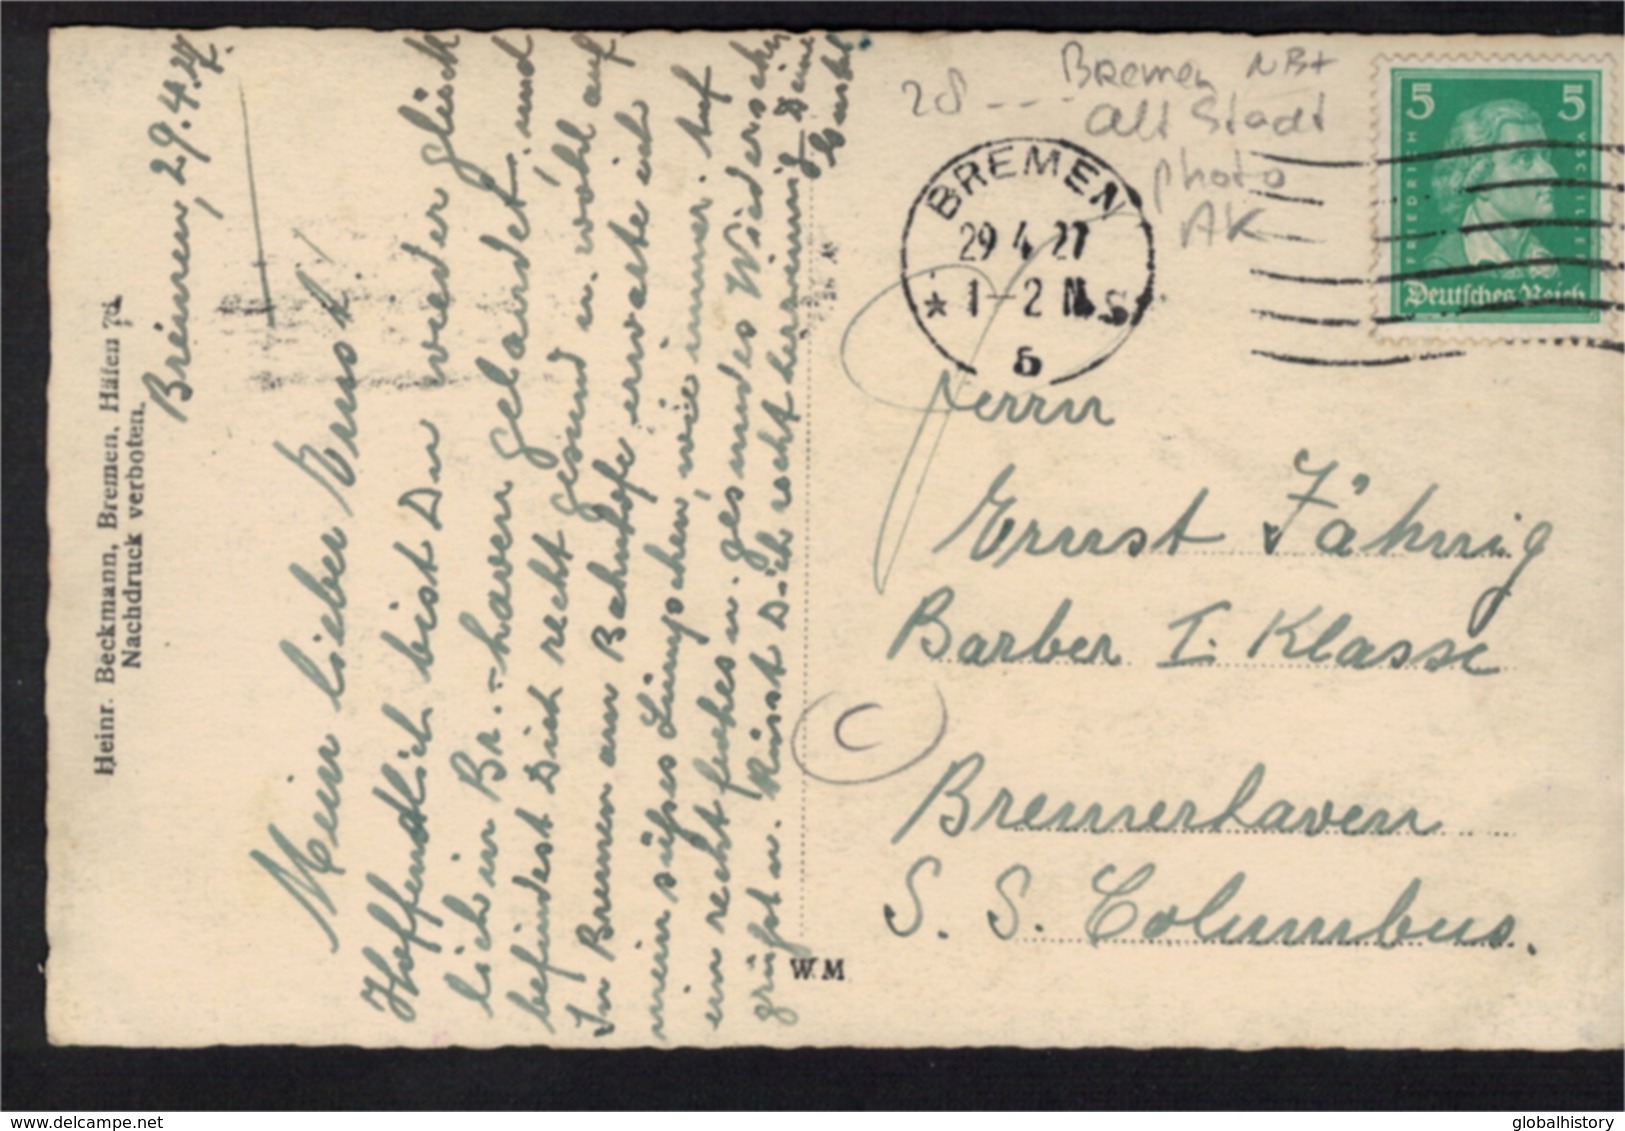 Heinr. Beckmann, Bremen, Häfen 7
Nachdruck verboten.
Bremen, 29.4.27.
Mein lieber Ernst!
Hoffendlich bist Du wieder glück
lich in Br.-haven gelandet und
befindest Dich recht gesund u. wohl auf
In Bremen am Bahnhofe erwarte ich
mein süßes Jungchen, wie immer. Auf
ein recht frohes u. gesundes Wiedersehen
grüßt u. küsst Dich recht herzinnig Deine
W.M
28 --- Bremen NB+
Alt Stadt
photo
AK
BREMEN
29 4 27
1-2 N
5 5
FRIEDRICH V. SCHILLER
Deutsches Reich
Herrn
Ernst Jähnig
Barber I. Klasse
Bremerhaven
S. S. Columbus.
C
delcampe.net
globalhistory